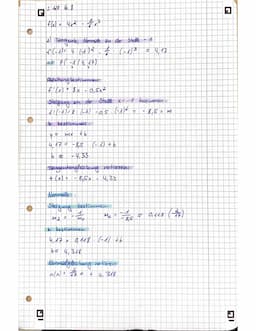 f(x) = 4x² - 1/6 x³
a) Tangente, Normale an der Stelle -1
f(-1) = 4·(-1)² - 1/6 · (-1)³ = 4,17
P(-1 | 4,17)
Ableitung bestimmen
f'(x) = 8x - 0,5x²
Steigung an der Stelle x = -1 bestimmen
f'(-1) = 8·(-1) - 0,5·(-1)² = -8,5 = m
b bestimmen
y = mx + b
4,17 = -8,5 · (-1) + b
b = -4,33
Tangentengleichung notieren
t(x) = -8,5x - 4,33
Normale
Steigung bestimmen
b bestimmen
4,17 = 0,118 · (-1) + b
b = 4,288
Normalengleichung notieren